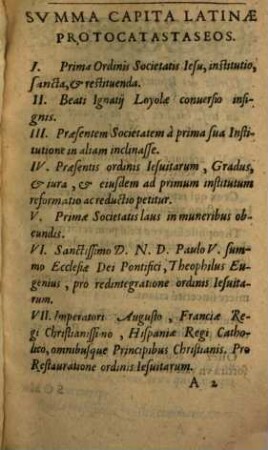 SVMMA CAPITA LATINÆ
PROTOCATASTASEOS.
I. Prima Ordinis Societatis Iesu, institutio,
sancta, & restituenda.
II. Beati Ignatij Loyolæ conversio insi-
gnis.
III. Præsentem Societatem à prima sua Insti-
tutione in aliam inclinasse.
IV. Præsentis ordinis Iesuitarum, Gradus,
& iura, & eiusdem ad primum institutum
reformatio ac reductio petitur.
V. Primæ Societatis laus in muneribus ob-
eundis.
VI. Sanctissimo D. N. D. Paulo V. sum-
mo Ecclesiæ Dei Pontifici, Theophilus Eu-
genius, pro redintegratione ordinis Iesuita-
rum.
VII. Imperatori Augusto, Franciæ Re-
gi Christianissimo, Hispaniæ Regi Catho-
lico, omnibusque Principibus Christianis. Pro
Restauratione ordinis Iesuitarum.
A 2